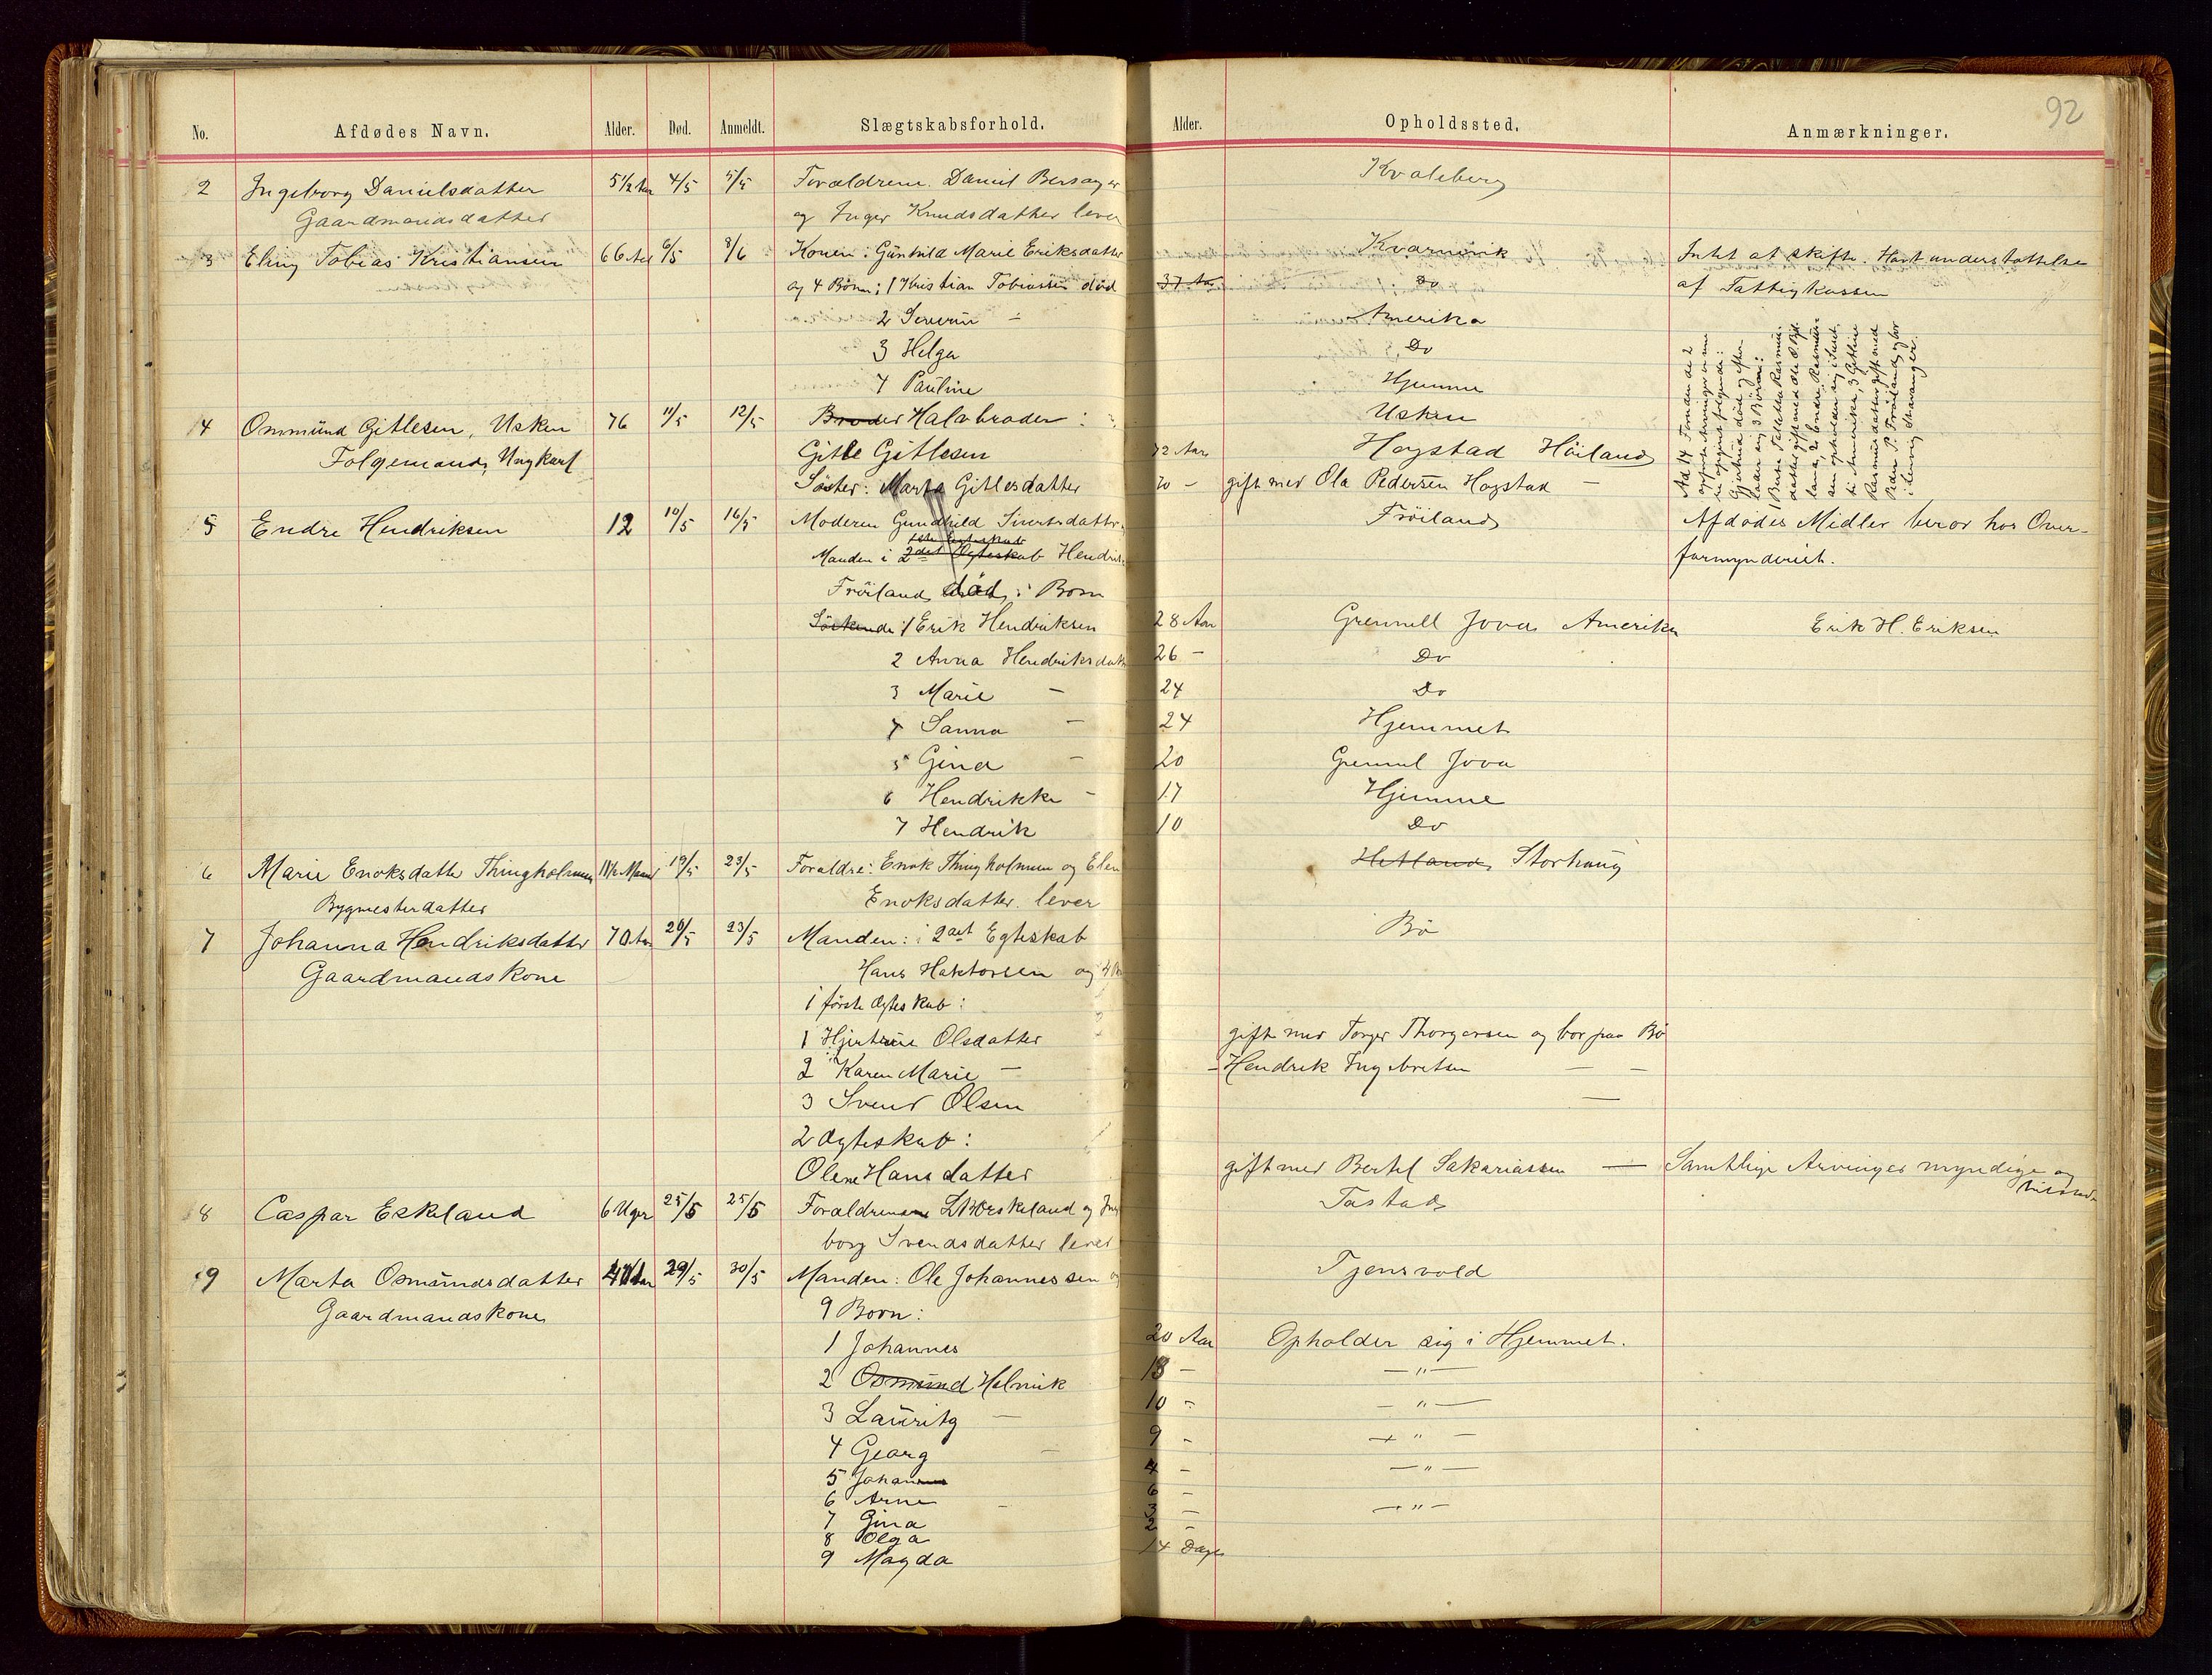 92
No. Afdødes Navn. Alder. Død. Anmeldt. Slægtskabsforhold. Alder. Opholdssted. Anmærkninger.
2 Ingeborg Danielsdatter 5 1/2 Aar 4/5 5/5 Forældrene. Daniel Kvaleberg
Gaardmandsdatter og Inger Knudsdatter lever
3 Eling Tobias Kristiansen 66 Aar 6/5 8/6 Konen: Gunhild Marie Eriksdatter Kvarnvik Intet at skifte. Havt understøttelse
og 4 Børn: 1 Kristian Tobiassen død 37 Aar Do af Fattigkassen
2 Severin - Amerika
3 Helga Do
4 Pauline Hjemme
14 Ommund Gitlesen, Usken 76 11/5 12/5 Broder Halvbroder: Usken
Folgemand, Ungkarl Gitle Gitlesen 72 Aar Hogstad Höiland
Søster: Marta Gitlesdatter 70 - gift med Ola Pedersen Hogstad -
Ad 14 Foruden de 2
Gjertrud død og efter-
lader sig 3 Börn:
5 Endre Hendriksen 12 10/5 16/5 Moderen Gundhild Sivertsdatter Fröiland Afdødes Midler beror hos Over-
1ste Egteskab
Manden i 2det Ægteskab Hendrik formynderiet.
Fröiland død: Børn
Söskende: 1 Erik Hendriksen 28 Aar Grennell Jova Amerika Erik H. Eriksen
2 Anna Hendriksdatt 26 - Do
3 Marie - 24 Do
4 Sanna - 24 Hjemmet
5 Gina - 20 Grennel Jova
6 Hendrikke - 17 Hjemme
7 Hendrik 10 Do
6 Marie Enoksdatter Thingholmen 11 1/2 Maan 19/5 23/5 Forældre: Enok Thingholmen og Elen Hetland, Storhaug
Bygmesterdatter Enoksdatter lever
7 Johanna Hendriksdatter 70 Aar 20/5 23/5 Manden: i 2det Egteskab Bö
Gaardmandskone Hans Haktorsen og 4
i förste Ægteskab:
1 Olsdatter gift med Torger Thorgersen og bor paa Bö
2 Karen Marie - - Hendrik Ingebretsen - -
3 Svend Olsen -
2 Ægteskab:
Olene Hansdatter gift med Bertel Sakariassen - Samtlige Arvinger myndige og
8 Caspar Eskeland 6 Uger 25/5 25/5 Forældrene Eskeland og Inge Tastad
borg Svendsdatter lever
19 Marta Osmundsdatter 29/5 30/5 Manden: Ole Johannessen og Tjensvold
Gaardmandskone 9 Børn:
1 Johannes 20 Aar Opholder sig i Hjemmet.
2 Osmund Helmik 18 - - " -
3 Lauritz - 10 - - " -
4 Georg - 9 - - " -
5 Johan 4 - - " -
6 Arne - 6 -
7 Gina 3 - - " -
8 Olga 2 -
9 Magda 14 Dage